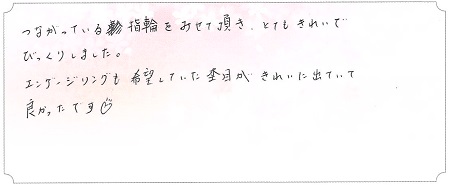 つながっている指輪をみせて頂き、とてもきれいで
びっくりしました。
エンゲージリングも希望していた杢目がきれいに出ていて
良かったです